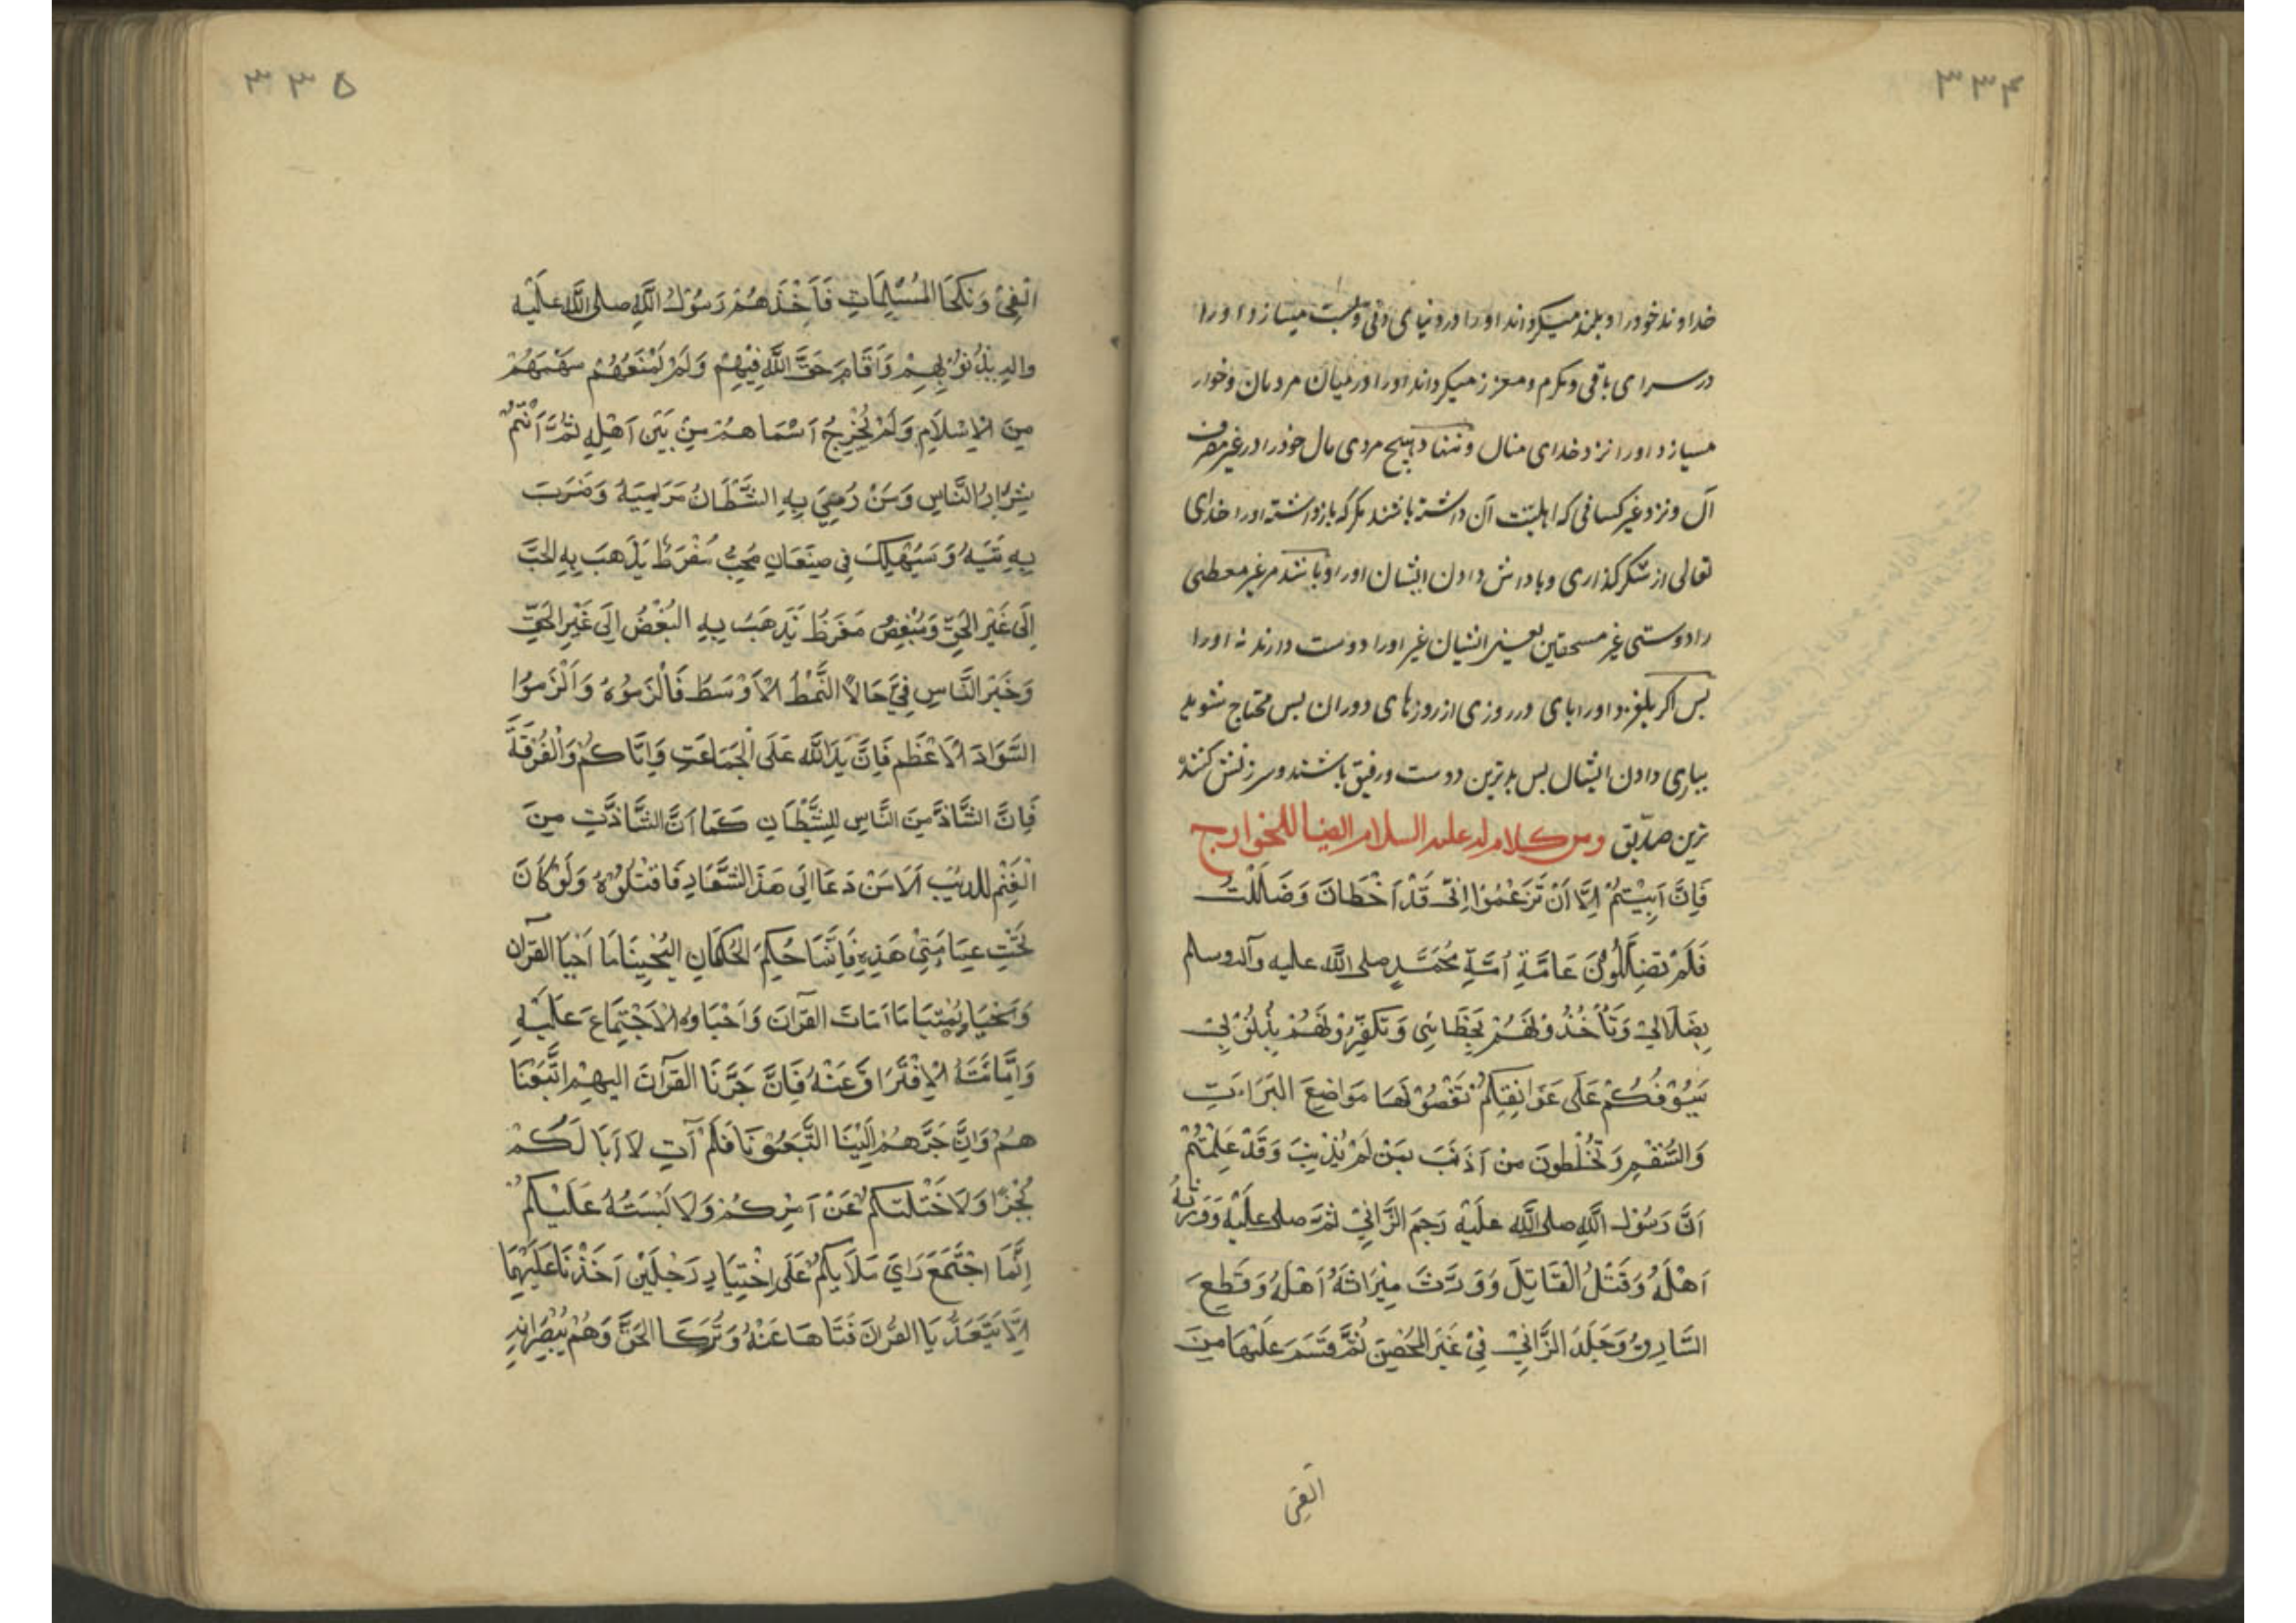 ۳۳۴
خداوند خود را و بلند میکرداند او را در دنیای دنی و پست میسازد او را
در سرای باقی و مکرم و معزز میکرداند او را در میان مردمان و خوار
میسازد او را نزد خدای منال و ننهاد هیچ مردی مال خود را در غیر مصرف
آن و نزد غیر کسانی که اهلیت آن داشته باشند مکر که بازداشته او را خدای
تعالی از شکرکذاری و پاداش دادن ایشان او را و باشند مر غیر معطی
را دوستی غیر مستحقین یعنی ایشان غیر او را دوست دارند نه او را
پس اکر بلغزد او را پای در روزی از روزهای دوران پس محتاج شود
بیاری دادن ایشان پس بدترین دوست و رفیق باشند و سرزنش کننده
ترین صدیق ومن کلام له علیه السلام ایضا للخوارج
فَاِنَّ اَبِیْتُمْ اِلَّا اَنْ تَزْعُمُوْا اِنّی قَدْ اَخْطَاتَ وَضَلَلْتُ
فَلَمْ تضِلَّلُوْنَ عَامَّةِ اُمَّةِ مُحَمَّدٍ صلی اللّٰه علیه وآله وسلم
بِضَلَالِیْ وَتَأْخُذُوْنَهُمْ بِخَطَائِی وَتَکَفِّرُوْنَهُمْ بِذُنُوْبِیْ
سَیُوْفُکُمْ عَلَی عَوَاتِقِکُمْ تَضَعُوْنَهَا مَوَاضِعَ البَرَاءَتِ
وَالسُّقْمِ وَتُخْلَطُونَ مَنْ اَذْنَبَ بِمَنْ لَمْ یُذْنِبَ وَقَدْ عَلِمْتُمْ
اَنَّ رَسُوْلَ اللّٰهِ صلی اللّٰه علَیْه رَجَمَ الزَّانِیْ ثُمَّ صلی علَیْه وَوَرَّثَهُ
اَهْلَهُ وَقَتْلُ الْقَاتِلَ وَوَرَّثَ مِیْرَاثَهُ اَهْلَهُ وَقَطَعَ
السَّارِقَ وَجَلَدَ الزَّانِیْ فِیْ غَیْرَ الْمُحْصِنَ ثُمَّ قَسَمَ عَلَیْهَا مِنَ
الفی
۳۳۵
الْفِیْ وَنَکَحَا المُسْلِمَاتِ فَاَخَذَهُمْ رَسُوْلُ اللّٰهِ صلی اللّٰه علَیْه
واله بِذُنُوْبِهِمْ وَاَقَامَ حَقَّ اللّٰهِ فِیْهِمْ وَلَمْ یَمْنَعْهُمْ سَهْمَهُمْ
مِنَ الْاِسْلَامِ وَلَمْ یُخْرِجُ اَسْمَاهُمْ مِنْ بَیْنَ اَهْلِهِ ثُمَّ اَنْتُمْ
شِرَارُ النَّاسِ وَمَنْ رُمِیَ بِهِ الشَّیْطَانُ مَرَامِیَهُ وَضَرَبَ
بِهِ تَیْهَهُ وَسَیُهْلِکُ فِی صِنْفَانِ مُحِبُّ مُفْرِطٌ یَذْهَبَ بِهِ الحُبَّ
اِلَی غَیْرِ الْحَقِّ وَمُبْغِضٌ مُفْرِطٌ یَذْهَبُ بِهِ البُغْضُ اِلَی غَیْرِ الْحَقِّ
وَخَیْرُ النَّاسِ فِیَّ حَالًا النَّمَطُ الْاَوْسَطُ فَالْزَمُوْهُ وَالْزَمُوْا
السَّوَادَ الْاَعْظَمِ فَاِنَّ یَدَ اللّٰه عَلَی الْجَمَاعَتِ وَاِیَّاکُمْ وَالْفُرْقَةَ
فَاِنَّ الشَّاذَّ مِنَ النَّاسِ لِلشَّیْطَانِ کَمَا اَنَّ الشَّاذَّتِ مِنَ
الْغَنَمِ للذِیْبَ اَلَا مَنْ دَعَا اِلَی هَذَا الشَّعَارِ فَاقْتُلُوْهُ وَلَوْ کَانَ
تَحْتَ عِمَامَتِیْ هَذِهِ فَاِنَّمَا حُکِمَ الْحُکَمَانِ الیُحْیِیَامَا اَحْیَا القرآن
وَیُمِیْتَا مَا اَمَاتَ القرآن وَاَحْیَاوُهُ الْاَجْتِمَاعَ عَلَیْهِ
وَاِمَّانَتُهُ الْاِفْتَرَاقَ عَنْهُ فَاِنَّ جَرَّنَا القرآنَ الیهِمْ اتَّبَعْنَا
هُمْ وَاِنَّ جَرَّهُمْ اِلَیْنَا التَّبَعُوْنَا فَلَمْ آتِ لَا اَبَا لَکُمْ
بُجْرًا وَلَا خَتَلْتُکُمْ عَنْ اَمْرِکُمْ وَلَا لَبَسْتُهُ عَلَیْکُمْ
اِنَّمَا اجْتَمَعَ رَایَ مَلَایکُمْ عَلَی اِخْتِیَارِ رَجْلَیْنِ اَخَذْنَا عَلَیْهِمَا
اِلَّا یَتَعَدَّیَا القُرْانَ فَتَاهَا عَنْهُ وَتَرَکَا الحَقَّ وَهُمْ یُبْصِرَانِهِ